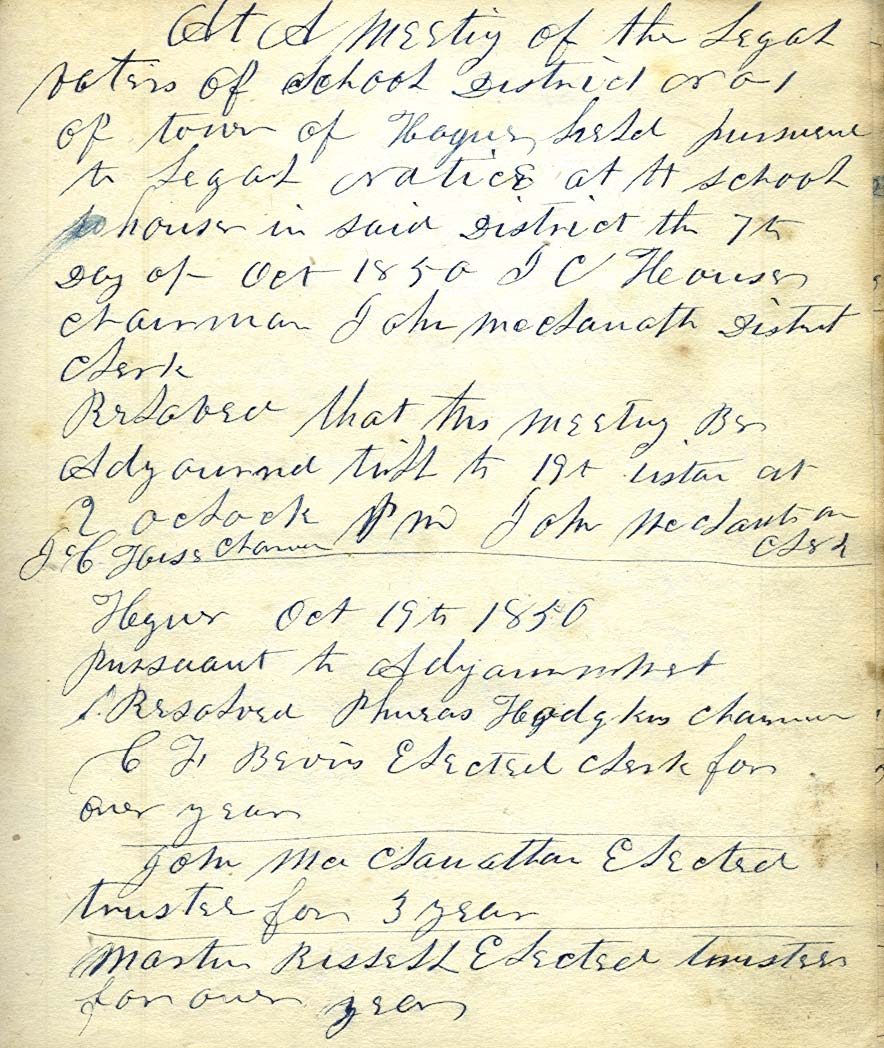 At A Meeting of the Legal
voters of School District No 1
of town of Hague held pursuant
to Legal Notice at tt school
house in said District the 7th
Day of Oct 1850 J C House
chairman John McClanath District
Clerk
Resolved that this meeting Be
Adjourned till th 19t instan at
7 oclock Pm John McClanthan
J C House Chairman Clerk
Hague Oct 19th 1850
pursuant to Adjournment
1. Resolved Phineas Hodgkins chairman
C F Bevins Elected clerk for
one year
John Mc Clanathan Elected
trustee for 3 year
Martin Russell Elected trustee
for one year